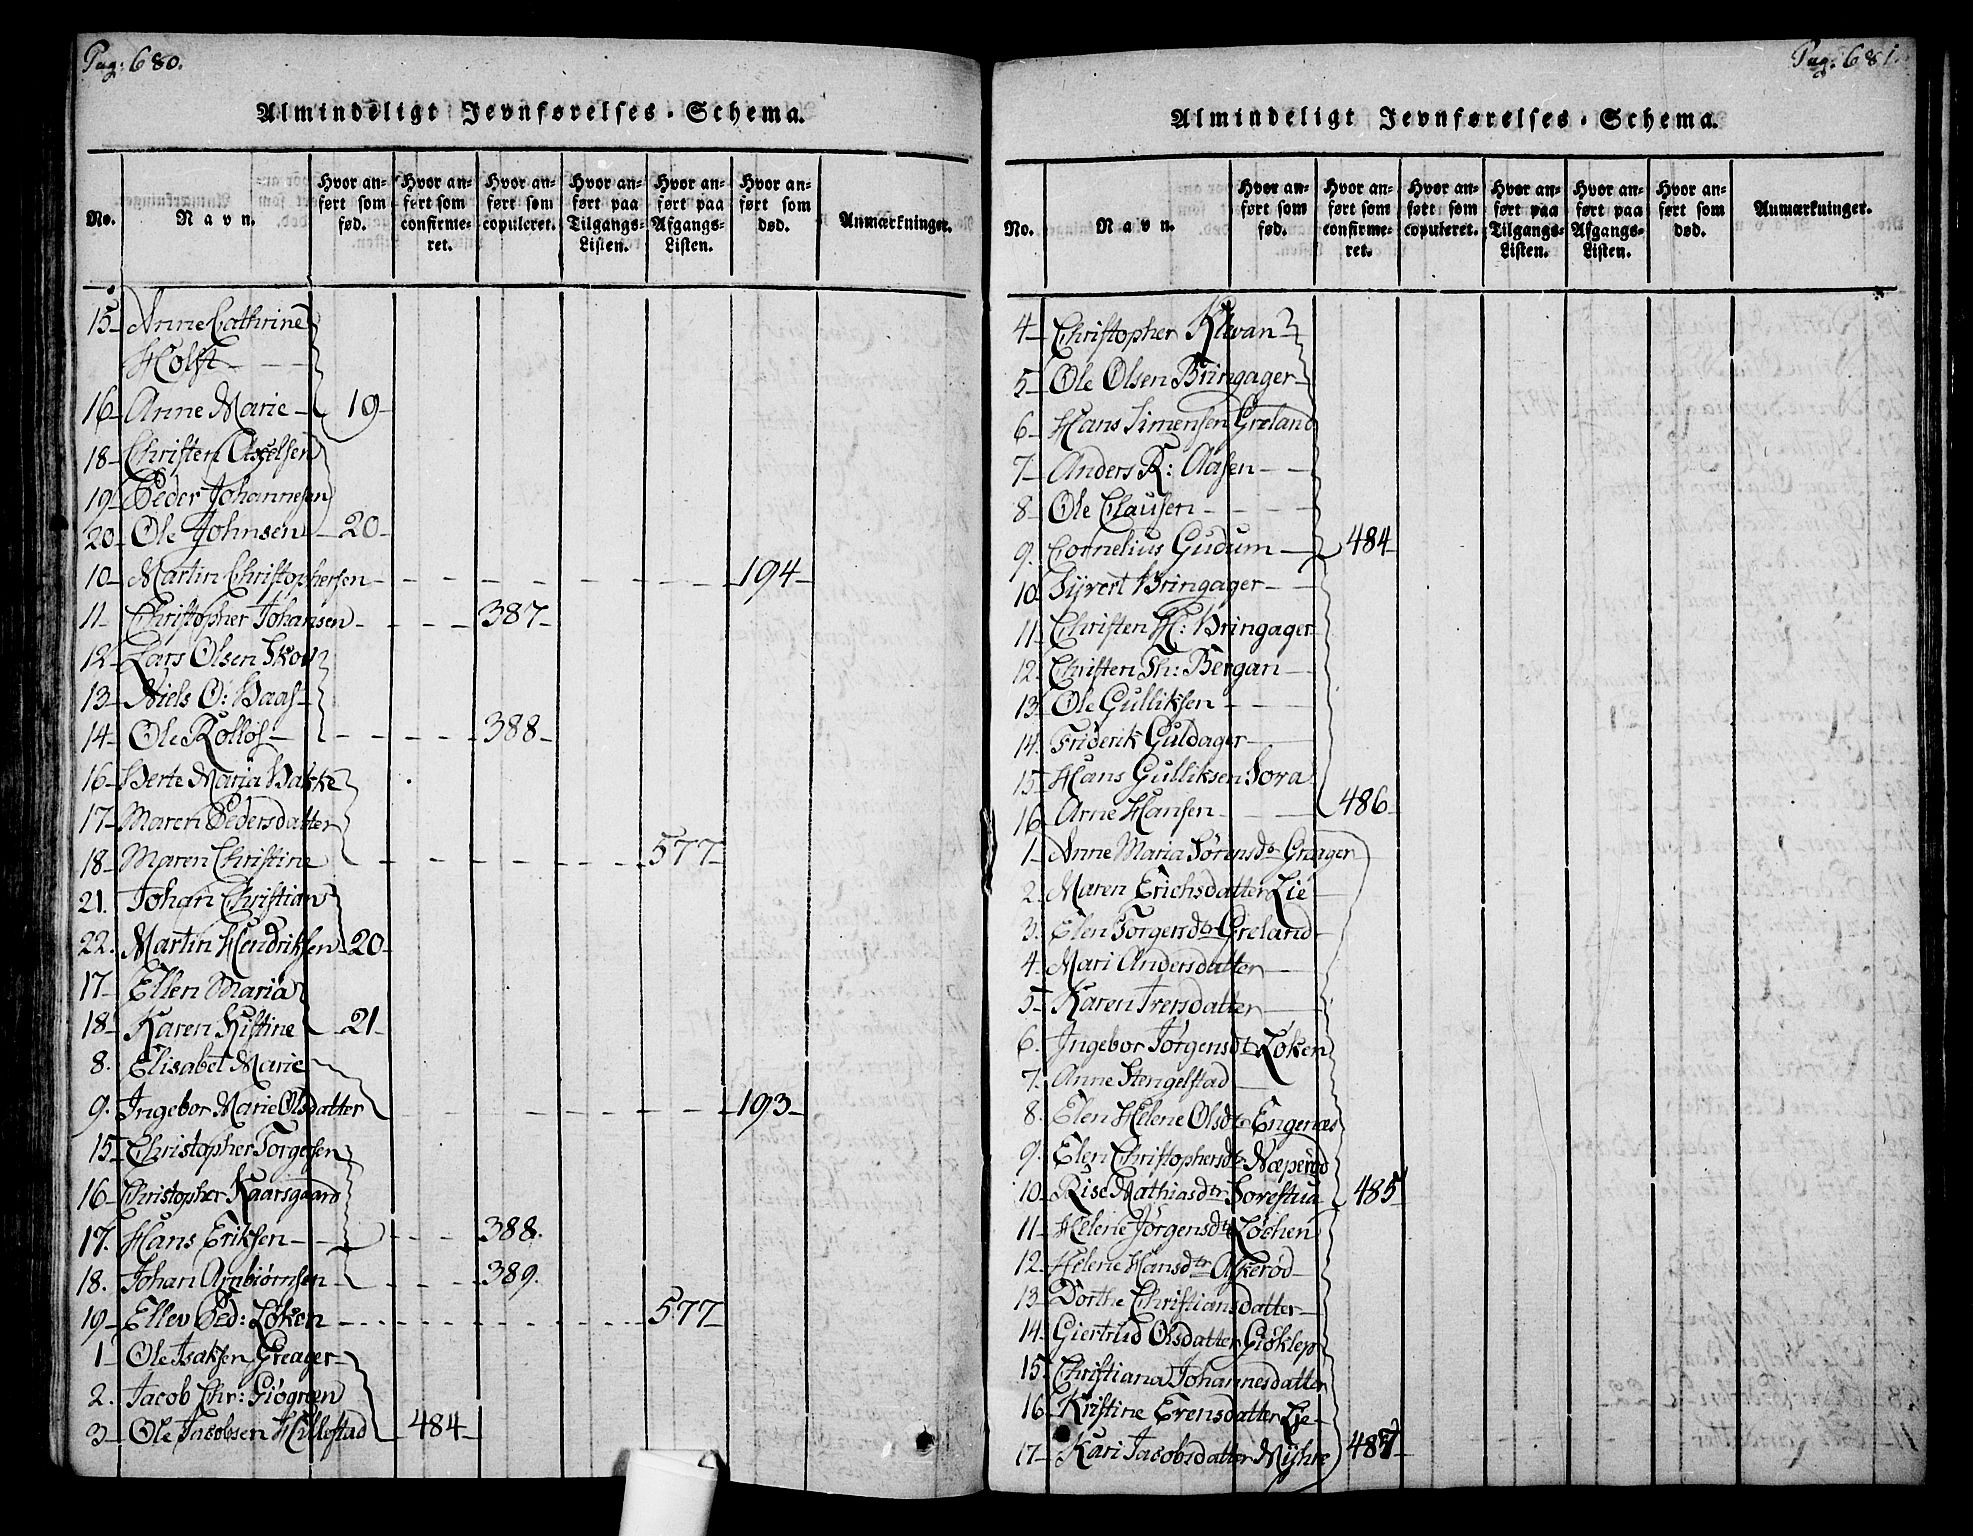 Pag: 680.
Almindeligt Jevnførelses-Schema.
No. Navn. Hvor anført som fød. Hvor anført som confirmeret. Hvor anført som copuleret. Hvor anført paa Tilgangs-Listen. Hvor anført paa Afgangs-Listen. Hvor anført som død. Anmærkninger.
15 Anne Cathrine
Holst
16 Anne Marie 19
18 Christen Axelsen
19 Peder Johannesen
20 Ole Johnsen 20
10 Martin Christophersen 194
11 Christopher Johansen 387
12 Lars Olsen Skov
13 Niels O: Haas
14 Ole Rølløs 388
16 Berte Maria Bakke
17 Maren Pedersdatter
18 Maren Christine 577
21. Johan Christian
22. Martin Hendriksen 20
17 Ellen Maria
18 Karen Kistine 21
8. Elisabet Marie
9. Ingebor Marie Olsdatter 193
15 Christopher Torgersen
16 Christopher Kaarsgaard
17. Hans Eriksen 388.
18. Johan Arnbiørnsen 389.
19 Ellev Ped: Løken 577
1 Ole Isaksen Greager
2. Jacob Chr: Giøgreen
3 Ole Jacobsen Hillestad 484
Pag. 681.
Almindeligt Jevnførelses-Schema.
No. Navn. Hvor anført som fød. Hvor anført som confirmeret. Hvor anført som copuleret. Hvor anført paa Tilgangs-Listen. Hvor anført paa Afgangs-Listen. Hvor anført som død. Anmærkninger.
4 Christopher Klevan
5 Ole Olsen Bringager
6 Hans Simensen Greland
7 Anders R: Aasen
8 Ole Clausen
9. Cornelius Gudum 484
10 Syvert Bringager
11 Christen H: Bringager
12. Christen Th: Bergan
13 Ole Gulliksen
14. Friderik Guldager
15 Hans Gulliksen Sora
16 Arne Hansen 486
1 Anne Maria Sørensdr Graager
2. Maren Erichsdatter Lie
3. Elen Torgersdr Greland
4 Mari Andersdatter
5 Karen Iversdatter
6. Ingebor Jørgensdr Løken
7. Anne Stengelstad
8. Elen Helene Olsdr Engenæs
9. Elen Christophersdr Næperød
10. Rise Mathiasdr Sorestua 485
11 Helene Jørgensdr Løchen
12. Helene Hansdr Askerød
13 Dorthe Christiansdatter
14. Giertrud Olsdatter Giøklep
15. Christiana Johannesdatter
16 Kristine Evensdatter Lie
17 Kari Jacobsdatter Myhre 487